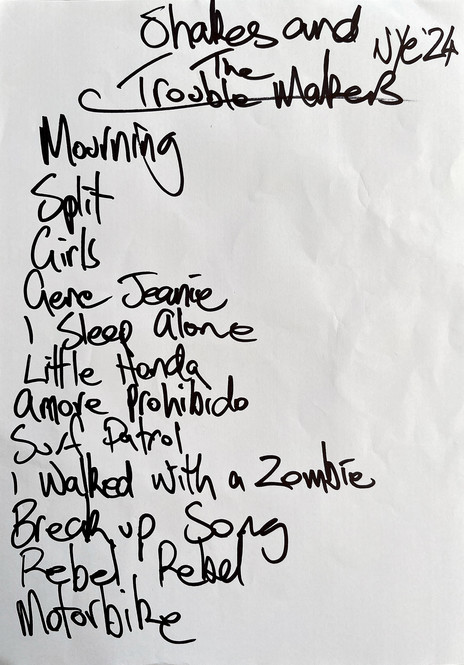 Shakes and
NYE '24
The
Trouble Makers
Mourning
Split
Girls
Gene Jeanie
I Sleep Alone
Little Honda
Amore Prohibido
Surf Patrol
I Walked with a Zombie
Break up Song
Rebel Rebel
Motorbike